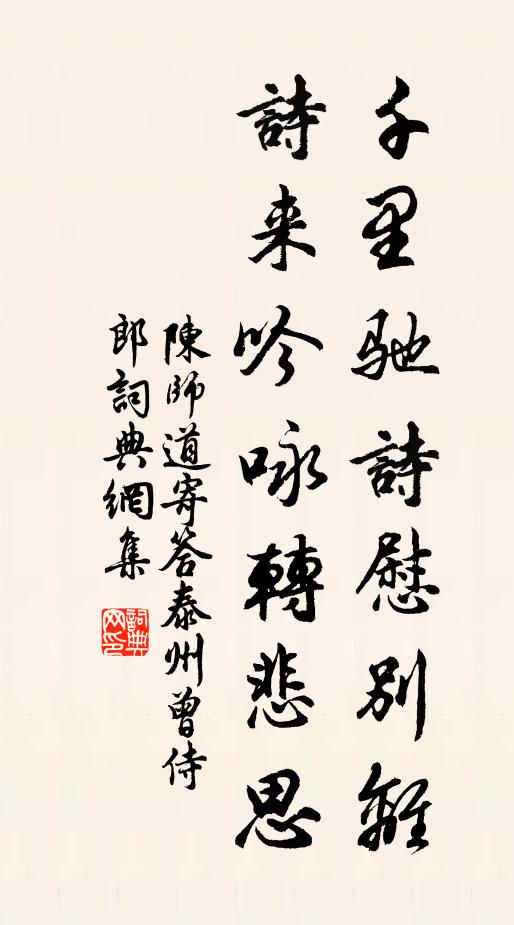 千里馳詩慰別離
詩来吟咏轉悲思
陳師道寄答泰州曾侍
郎詞典網集
詞典
网印